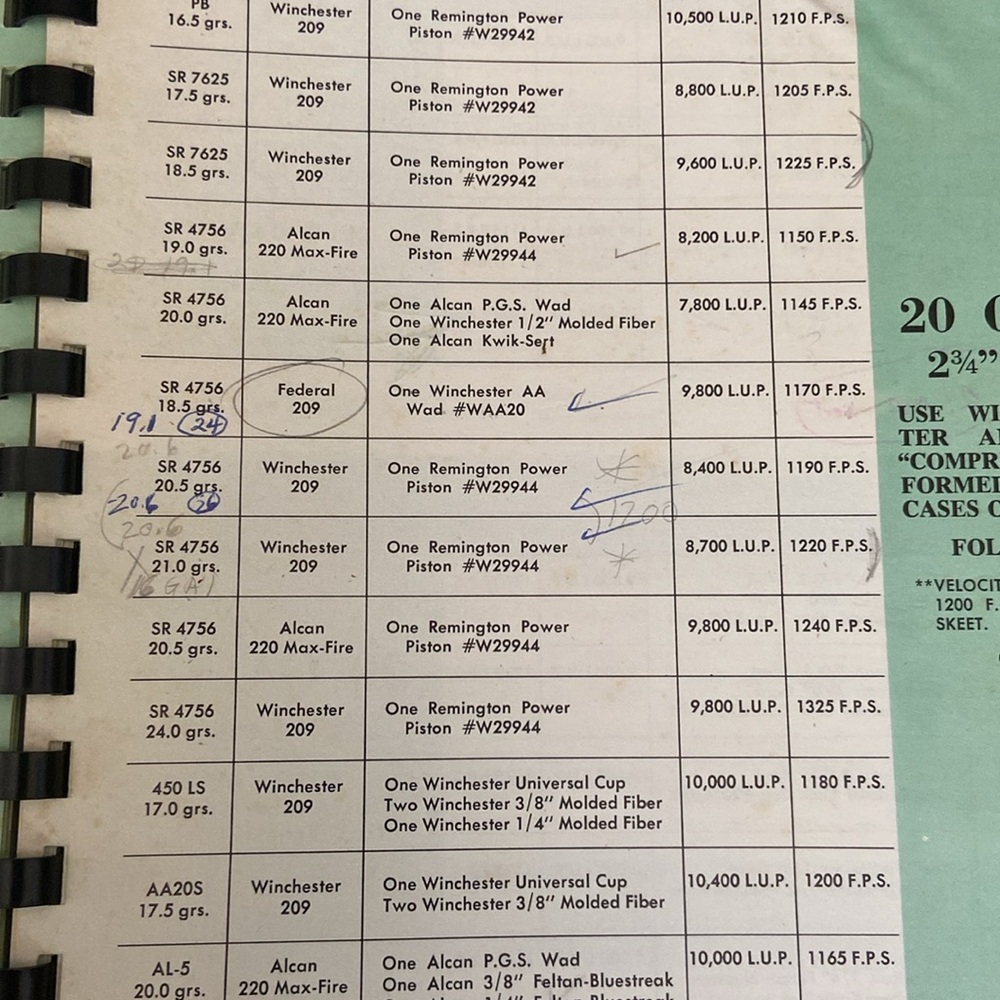 PB Winchester One Remington Power 10,500 L.U.P. 1210 F.P.S.
16.5 grs. 209 Piston #W29942
SR 7625 Winchester One Remington Power 8,800 L.U.P. 1205 F.P.S.
17.5 grs. 209 Piston #W29942
SR 7625 Winchester One Remington Power 9,600 L.U.P. 1225 F.P.S.
18.5 grs. 209 Piston #W29942
SR 4756 Alcan One Remington Power 8,200 L.U.P. 1150 F.P.S.
19.0 grs. 220 Max-Fire Piston #W29944
SR 4756 Alcan One Alcan P.G.S. Wad 7,800 L.U.P. 1145 F.P.S.
20.0 grs. 220 Max-Fire One Winchester 1/2" Molded Fiber
One Alcan Kwik-Sert
SR 4756 Federal One Winchester AA 9,800 L.U.P. 1170 F.P.S.
18.5 grs. 209 Wad #WAA20
19.1 24
20.6
SR 4756 Winchester One Remington Power 8,400 L.U.P. 1190 F.P.S.
20.5 grs. 209 Piston #W29944
20.6 1200
20.6
SR 4756 Winchester One Remington Power 8,700 L.U.P. 1220 F.P.S.
21.0 grs. 209 Piston #W29944
16 GA
SR 4756 Alcan One Remington Power 9,800 L.U.P. 1240 F.P.S.
20.5 grs. 220 Max-Fire Piston #W29944
SR 4756 Winchester One Remington Power 9,800 L.U.P. 1325 F.P.S.
24.0 grs. 209 Piston #W29944
450 LS Winchester One Winchester Universal Cup 10,000 L.U.P. 1180 F.P.S.
17.0 grs. 209 Two Winchester 3/8" Molded Fiber
One Winchester 1/4" Molded Fiber
AA20S Winchester One Winchester Universal Cup 10,400 L.U.P. 1200 F.P.S.
17.5 grs. 209 Two Winchester 3/8" Molded Fiber
AL-5 Alcan One Alcan P.G.S. Wad 10,000 L.U.P. 1165 F.P.S.
20.0 grs. 220 Max-Fire One Alcan 3/8" Feltan-Bluestreak
20
2¾"
USE WI
TER
"COMPR
FORMED
CASES
FOL
**VELOCIT
1200 F.
SKEET.